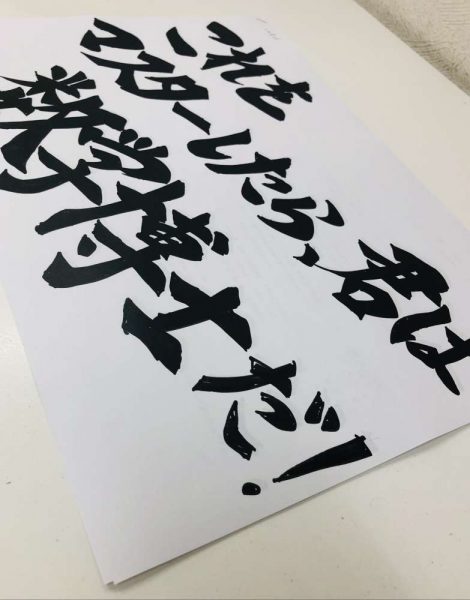 これを
マスターしたら、君は
数学博士だ!